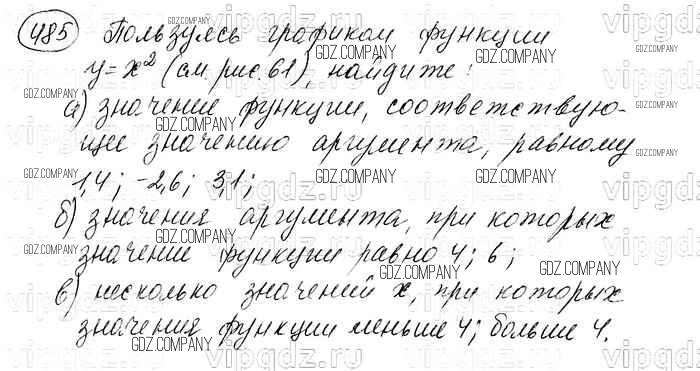 485 Пользуясь графиком функции
y = x² (см. рис. 61), найдите:
а) значение функции, соответствую-
щее значению аргумента, равному
1,4; -2,6; 3,1;
б) значения аргумента, при которых
значение функции равно 4; 6;
в) несколько значений x, при которых
значения функции меньше 4; больше 4.